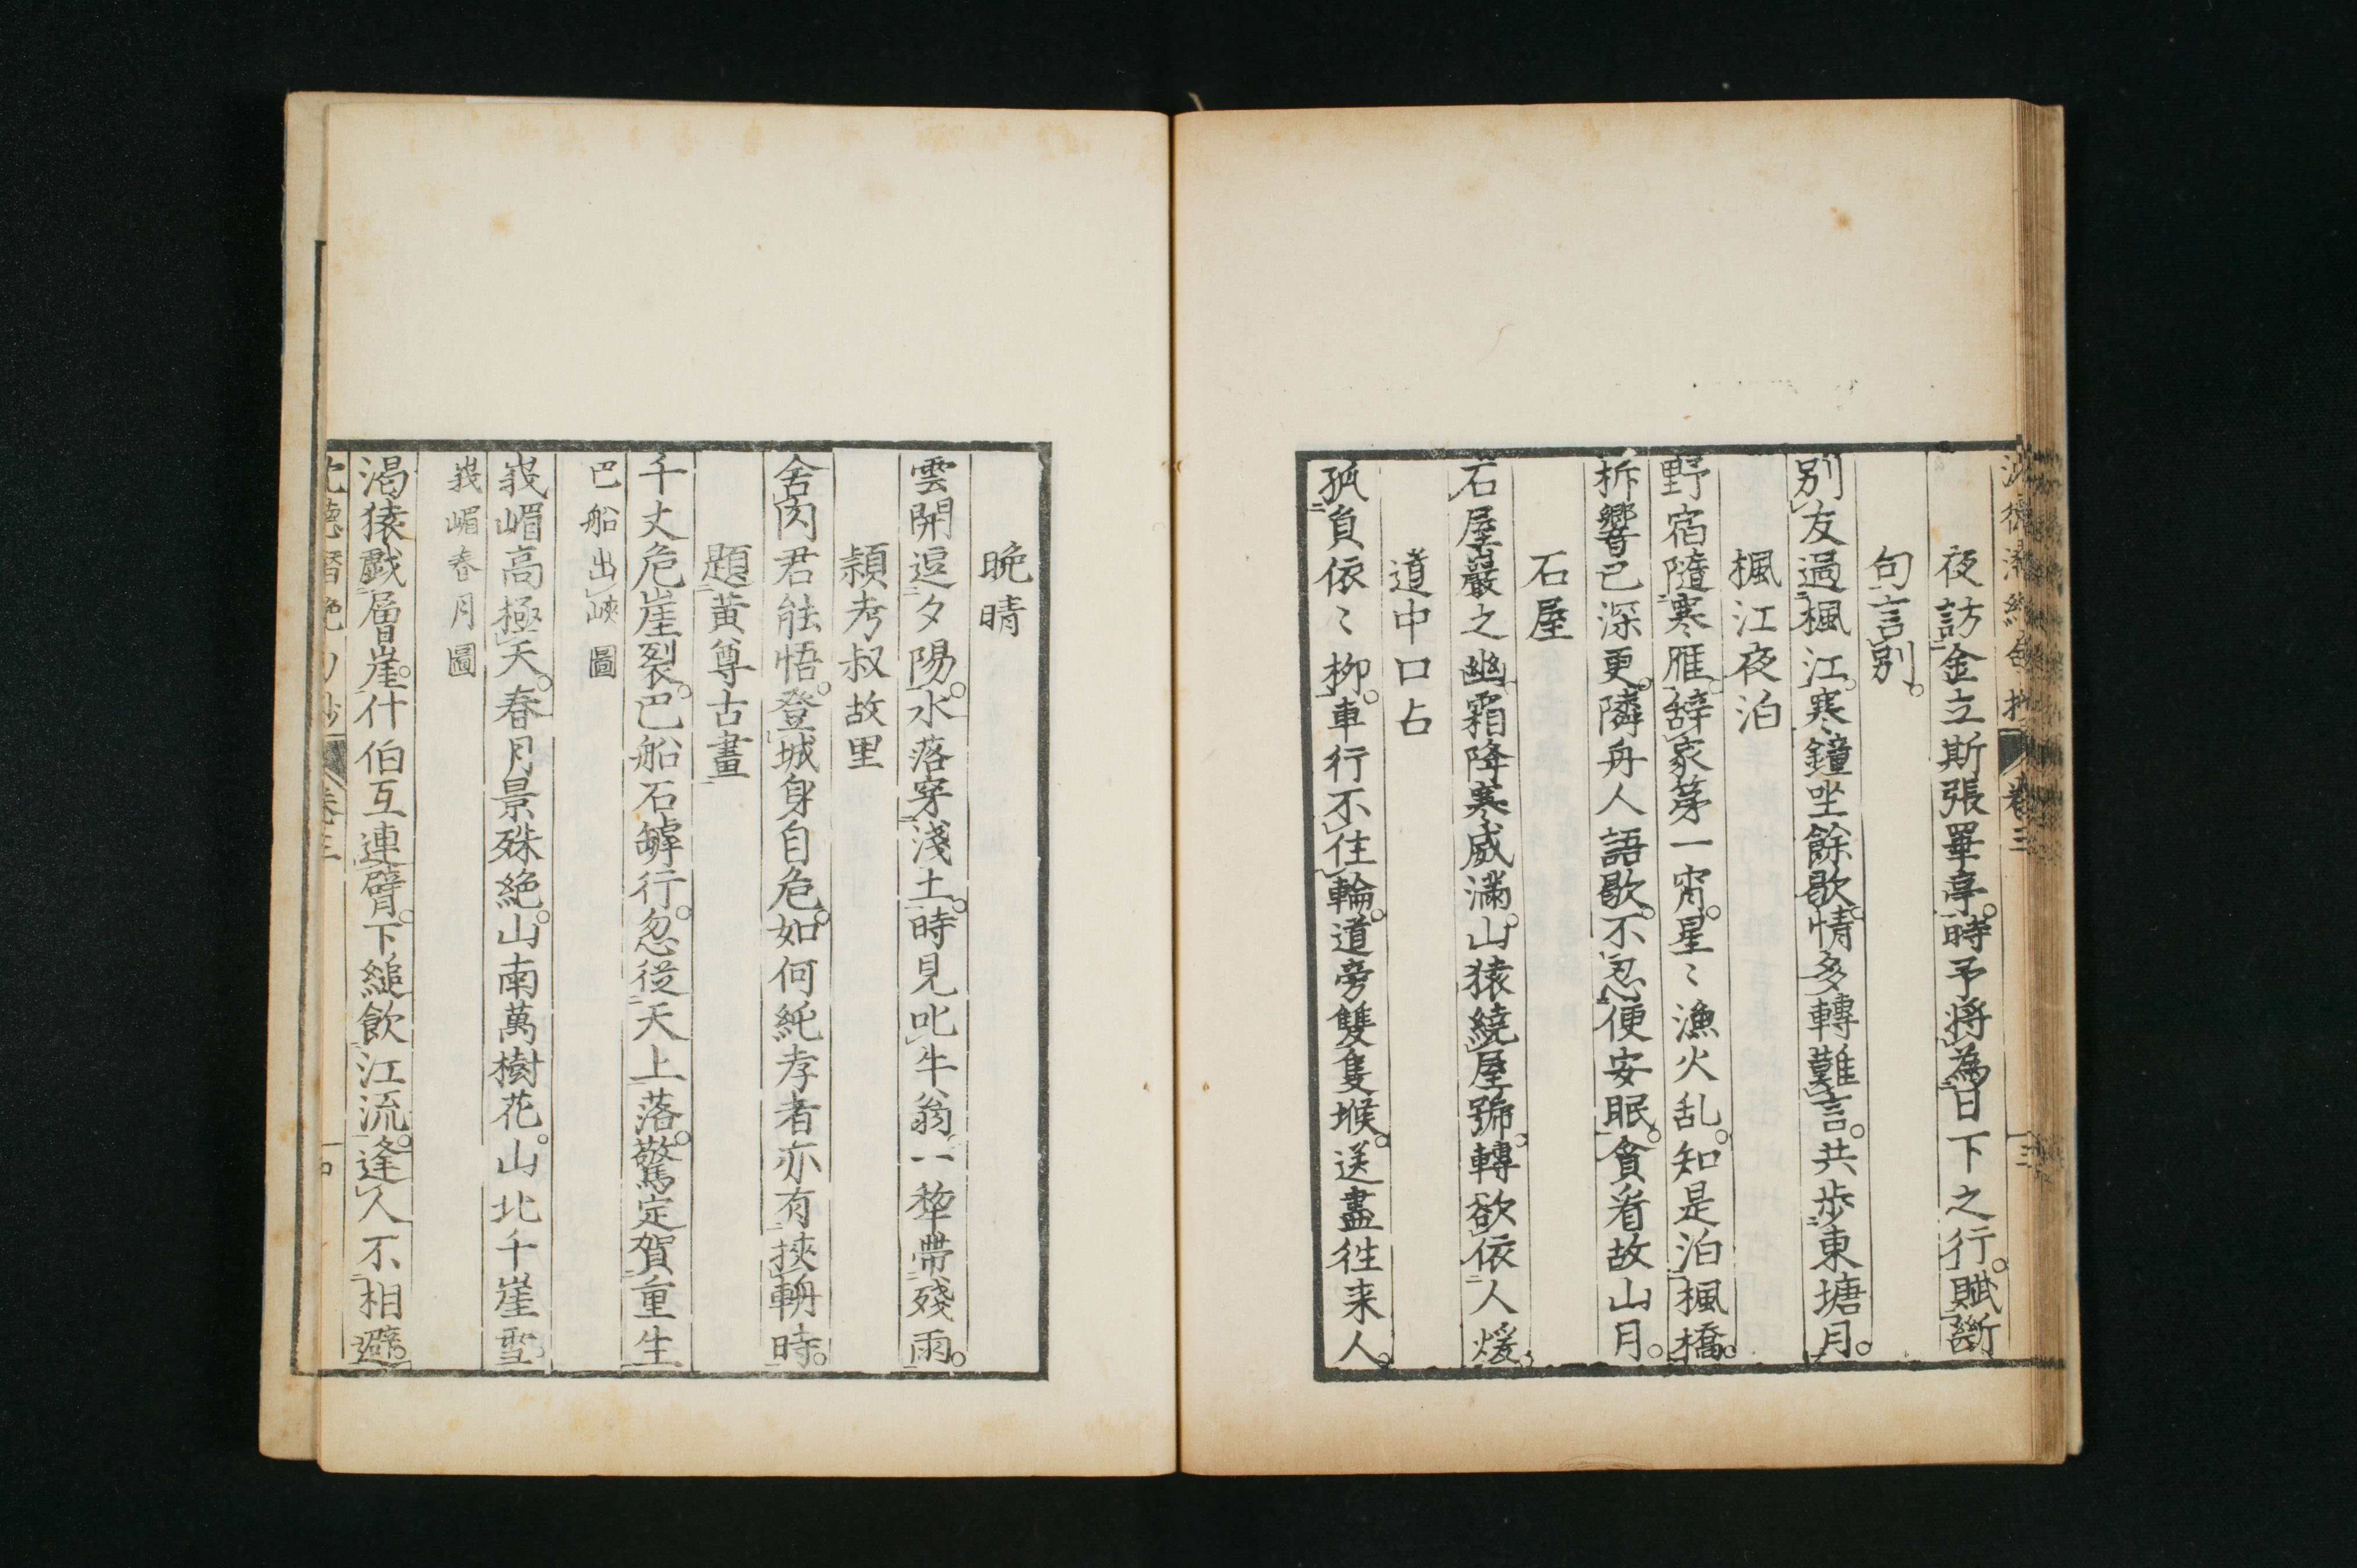 夜訪金立斯張畢亭。時予將為日下之行。賦斷
句言別。
別友過楓江。寒鐘坐餘歇。情多轉難言。共歩東塘月。
楓江夜泊
野宿隨寒雁。辞家第一宵。星〻漁火乱。知是泊楓橋。
柝響已深更。隣舟人語歇。不忍便安眠。貪看故山月。
石屋
石屋巖之幽霜降寒威滿。山猿繞屋號。轉欲依人煖。
道中口占
孤負依〻柳。車行不住輪。道旁雙隻堠。送盡徃来人。
卷三
晩晴
雲開逗夕陽。水落穿淺土。時見叱牛翁。一犂帶殘雨。
潁考叔故里
舍肉君能悟。登城身自危。如何純孝者亦有挾輈時。
題黄尊古畫
千丈危崖裂。巴船石罅行。忽從天上落。驚定賀重生
巴船出峽圖
峩嵋高極天。春月景殊絶。山南萬樹花。山北千崖雪。
峩嵋春月圖
渇猿戯層崖。什伯互連臂。下縋飲江流。逢人不相避。